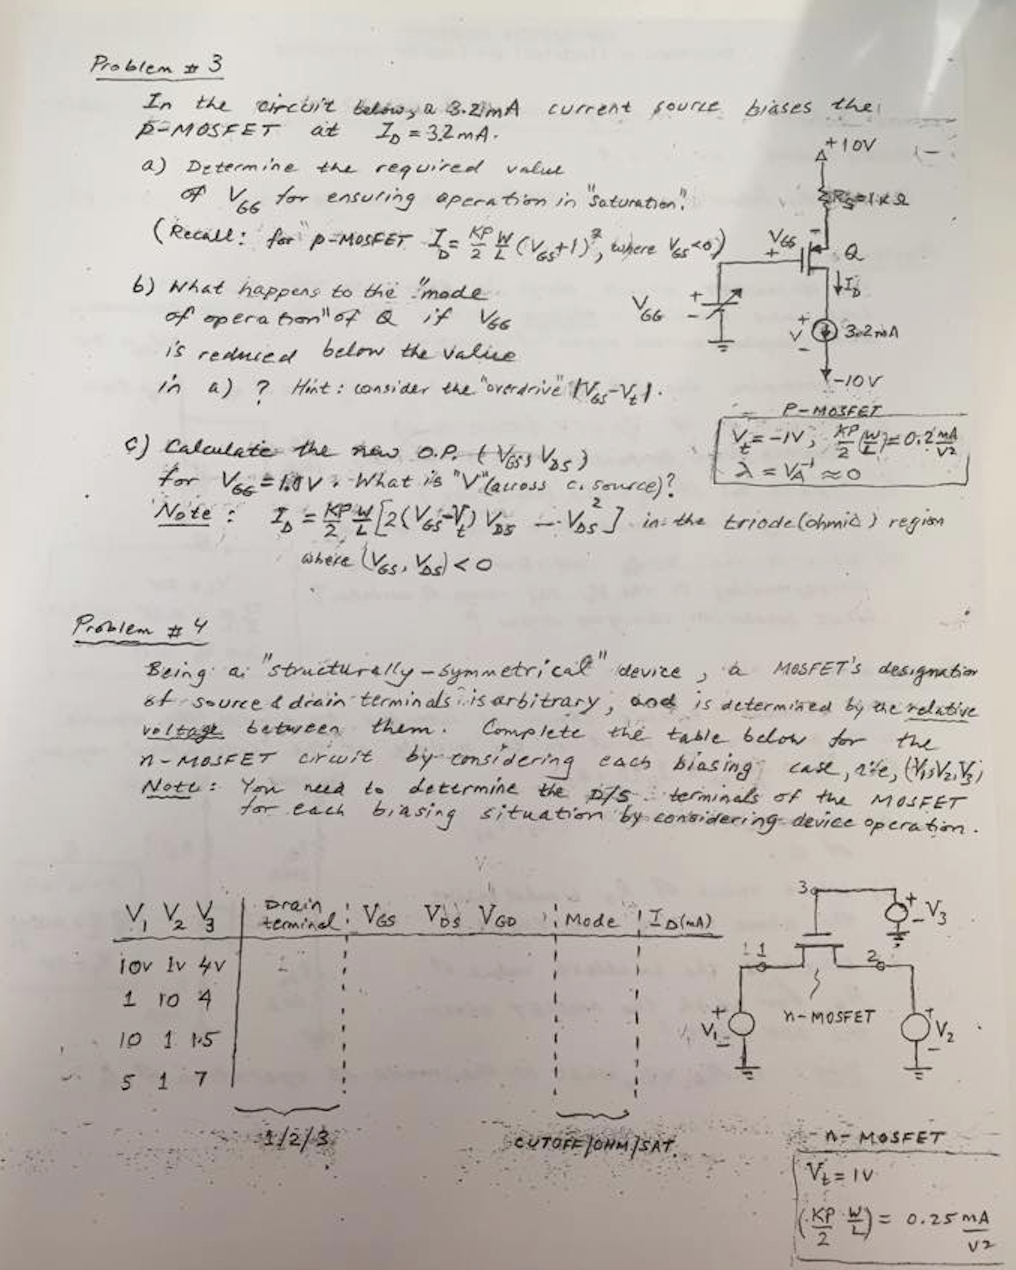 Problem # 3
In the circuit below, a 3.2mA current source biases the
p-MOSFET at I_D = 3.2mA.
a) Determine the required value
of V_GG for ensuring operation in "saturation".
(Recall: for p-MOSFET I_D = KP/2 W/L (V_GS+1)², where V_GS<0)
b) What happens to the "mode
of operation" of Q if V_GG
is reduced below the value
in a) ? Hint: consider the "overdrive" |V_GS-V_t|.
c) Calculate the new O.P. (V_GS, V_DS)
for V_GG = 1.0V. What is "V" (across c. source)?
Note : I_D = KP/2 W/L [2(V_GS-V_t) V_DS - V_DS²] in the triode (ohmic) region
where (V_GS, V_DS) < 0
+10V
R_S=1kΩ
V_GS
- +
Q
I_D
V_GG
+
-
+
V
-
3.2mA
-10V
P-MOSFET
V_t = -1V; KP/2 (W/L) = 0.2 mA/V²
λ = V_A⁻¹ ≈ 0
Problem # 4
Being a "structurally-symmetrical" device, a MOSFET's designation
of source & drain terminals is arbitrary, and is determined by the relative
voltage between them. Complete the table below for the
n-MOSFET circuit by considering each biasing case, i.e., (V₁,V₂,V₃)
Note: You need to determine the D/S terminals of the MOSFET
for each biasing situation by considering device operation.
V₁ V₂ V₃ Drain terminal V_GS V_DS V_GD Mode I_D(mA)
10V 1V 4V
1 10 4
10 1 1.5
5 1 7
1/2/3
CUTOFF/OHM/SAT.
3
+
-
V₃
1
2
+
V₁
-
n-MOSFET
+
V₂
-
n-MOSFET
V_t = 1V
(KP/2 W/L) = 0.25 mA/V²